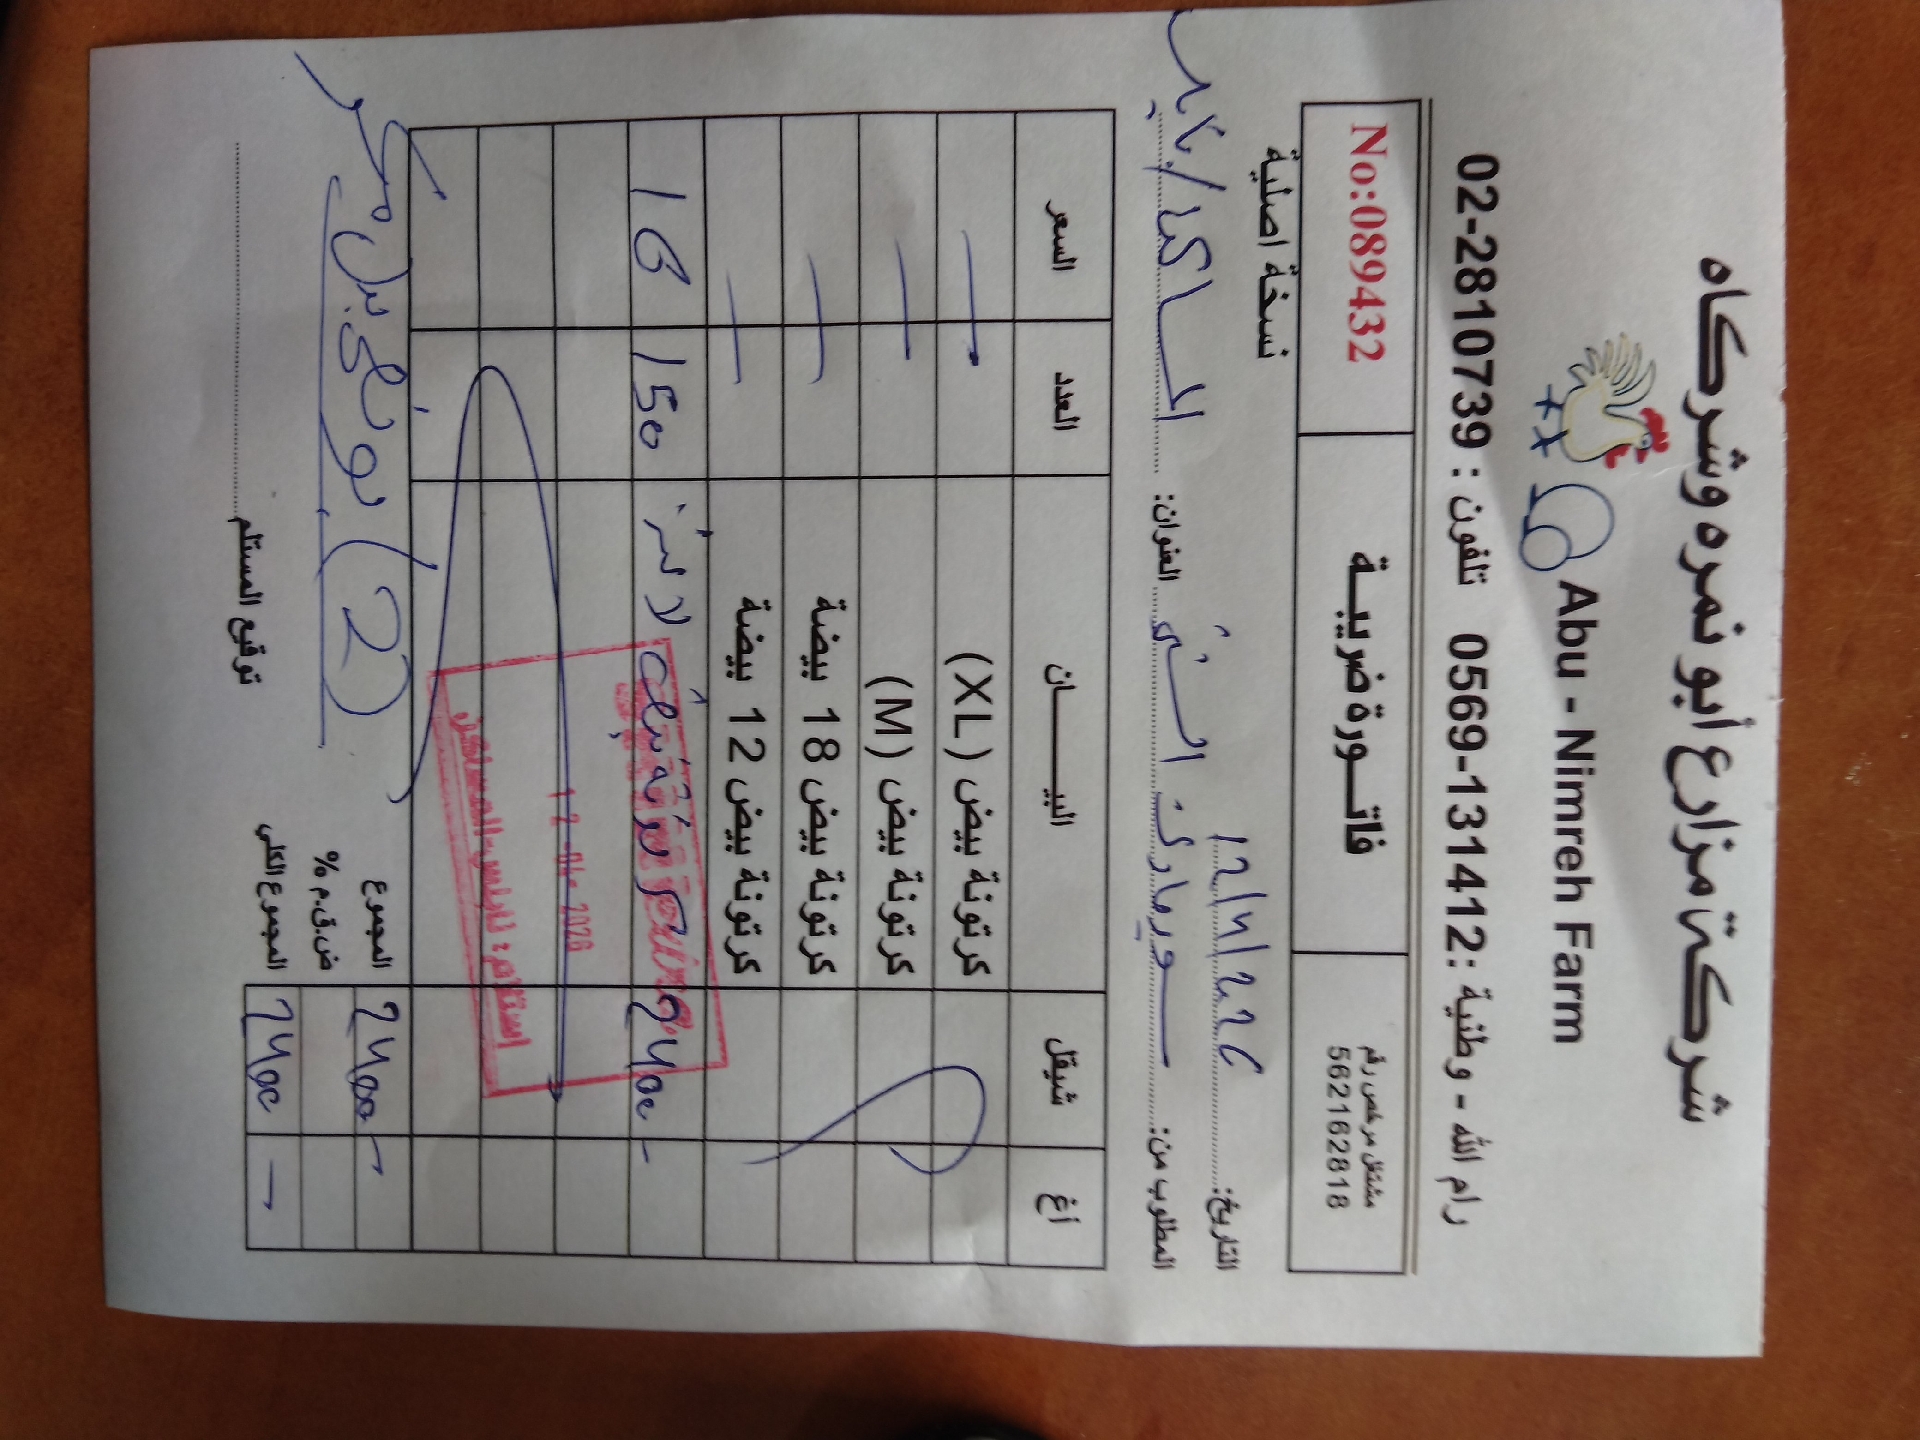 شركة مزارع أبو نمره وشركاه
Abu - Nimreh Farm
رام الله - وطنية : 0569-131412 تلفون : 02-2810739
مشتغل مرخص رقم
562162818
فاتورة ضريبية
No:089432
نسخة اصلية
التاريخ: 12/4/2026
المطلوب من: سوبرماركت السني العنوان:
البيان العدد السعر شيقل اغ
كرتونة بيض (XL)
كرتونة بيض (M)
كرتونة بيض 18 بيضة
كرتونة بيض 12 بيضة
150 16 2400 -
12-04-2026
استلام :
المجموع 2400 -
ض.ق.م %
المجموع الكلي 2400 -
(2)
توقيع المستلم